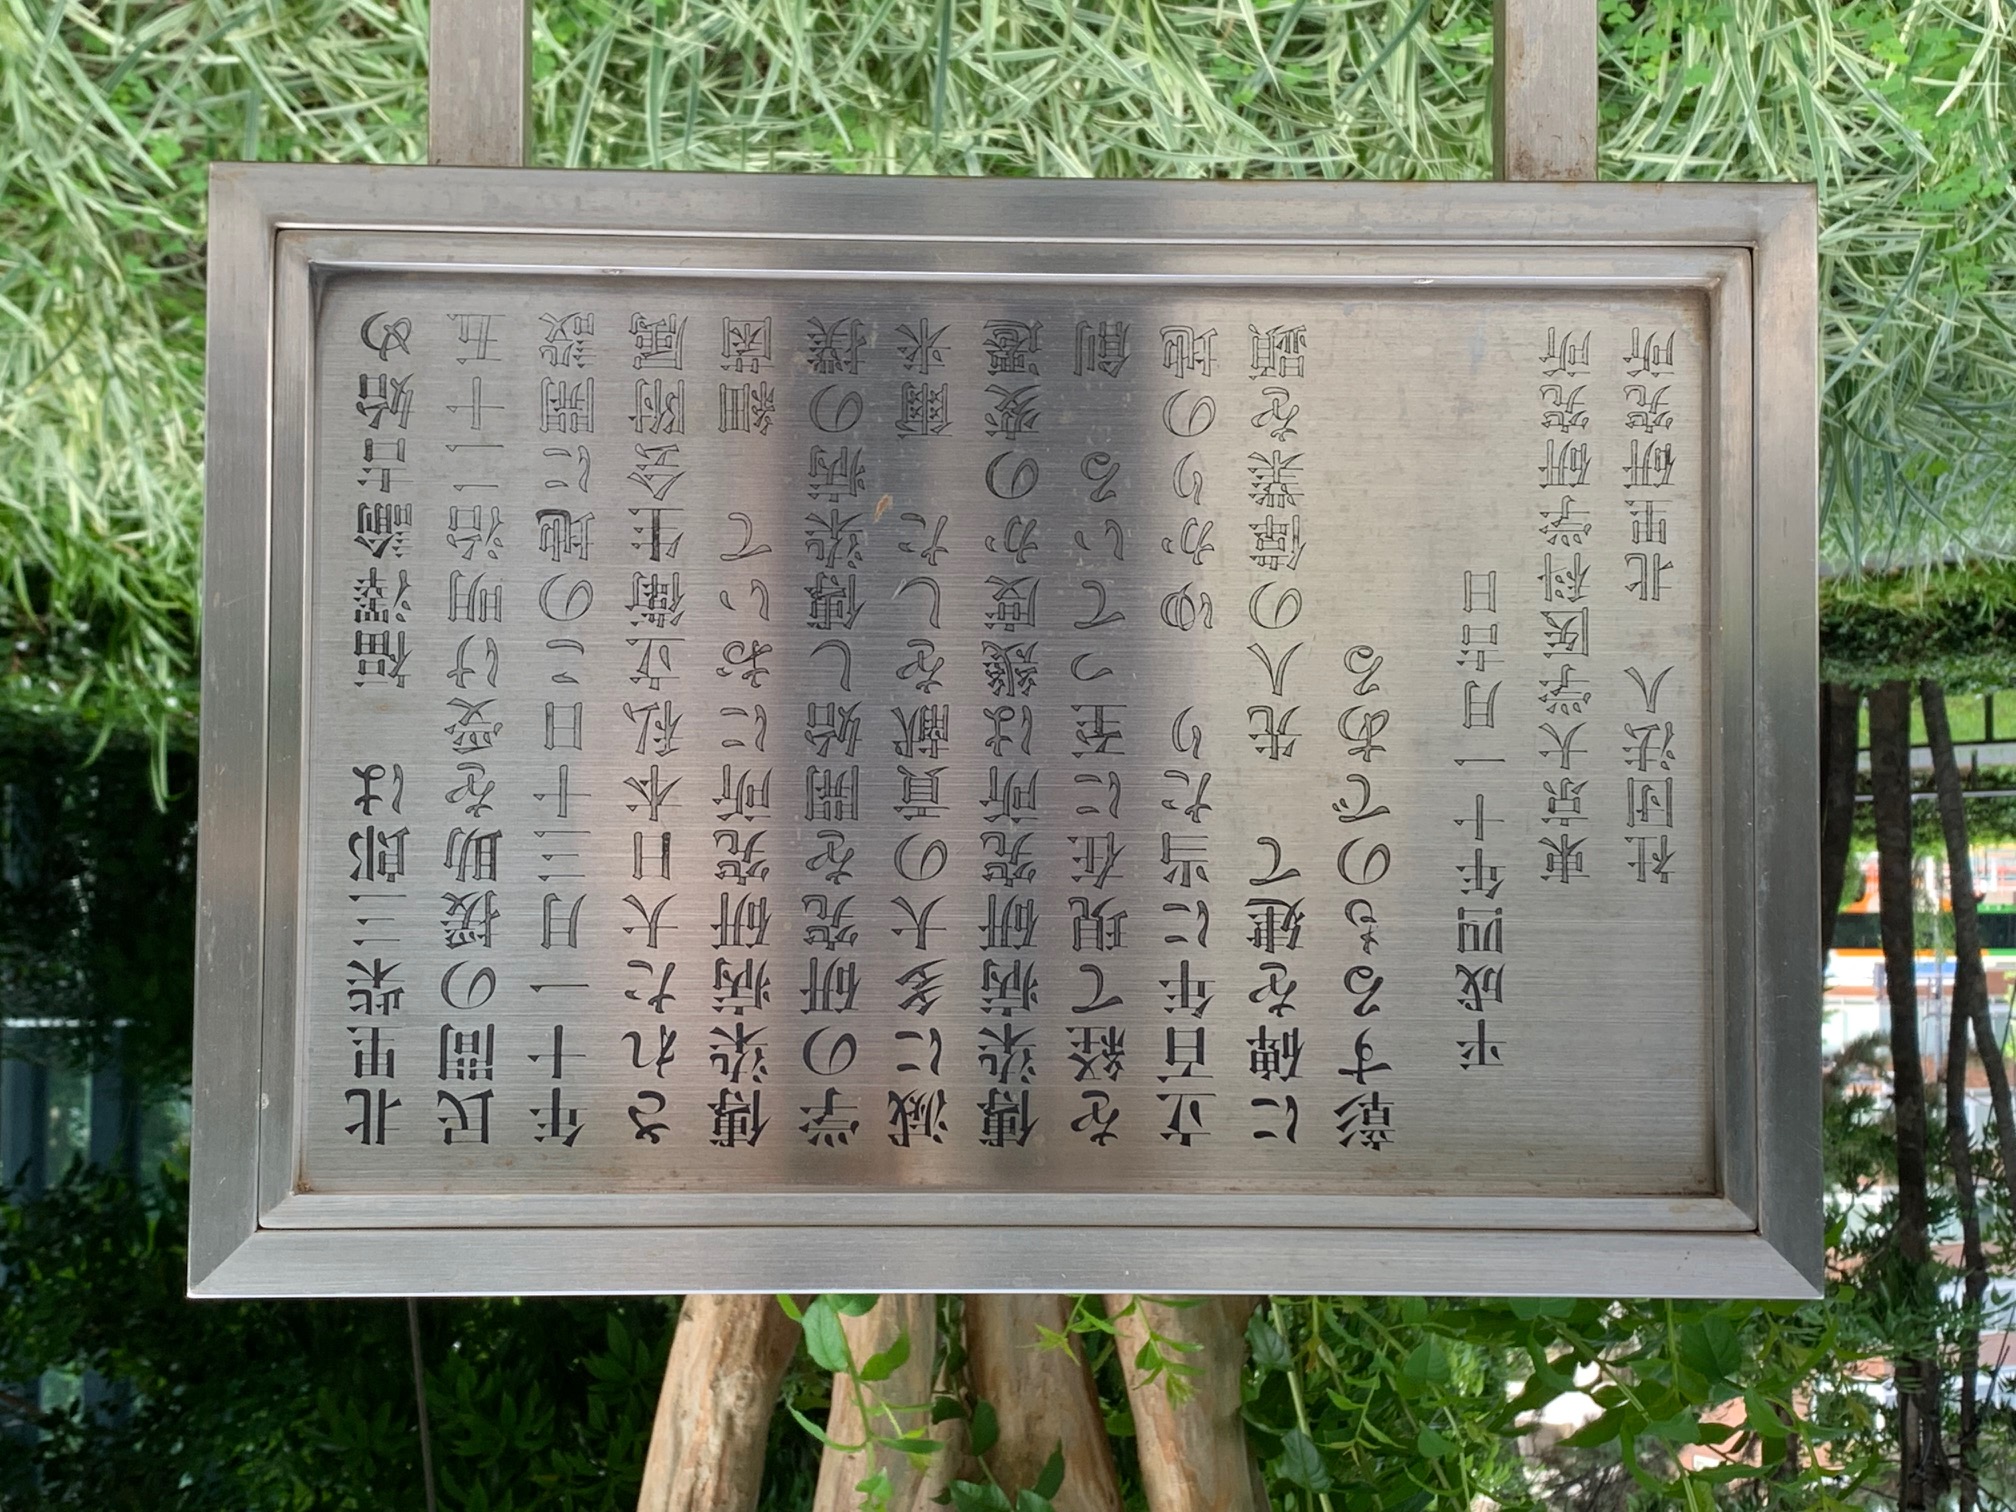 北里柴三郎は　福澤諭吉始め
民間の援助を受け明治二十五
年十一月三十日この地に開設
された大日本私立衛生会附属
傳染病研究所において　細菌
学の研究を開始し傳染病の撲
滅に多大の貢献をした　爾来
傳染病研究所は幾度かの変遷
を経て現在に至っている　創
立百年に当たり　ゆかりの地
に碑を建て　先人の偉業を顕
彰するものである
平成四年十一月吉日
東京大学医科学研究所
社団法人　北里研究所